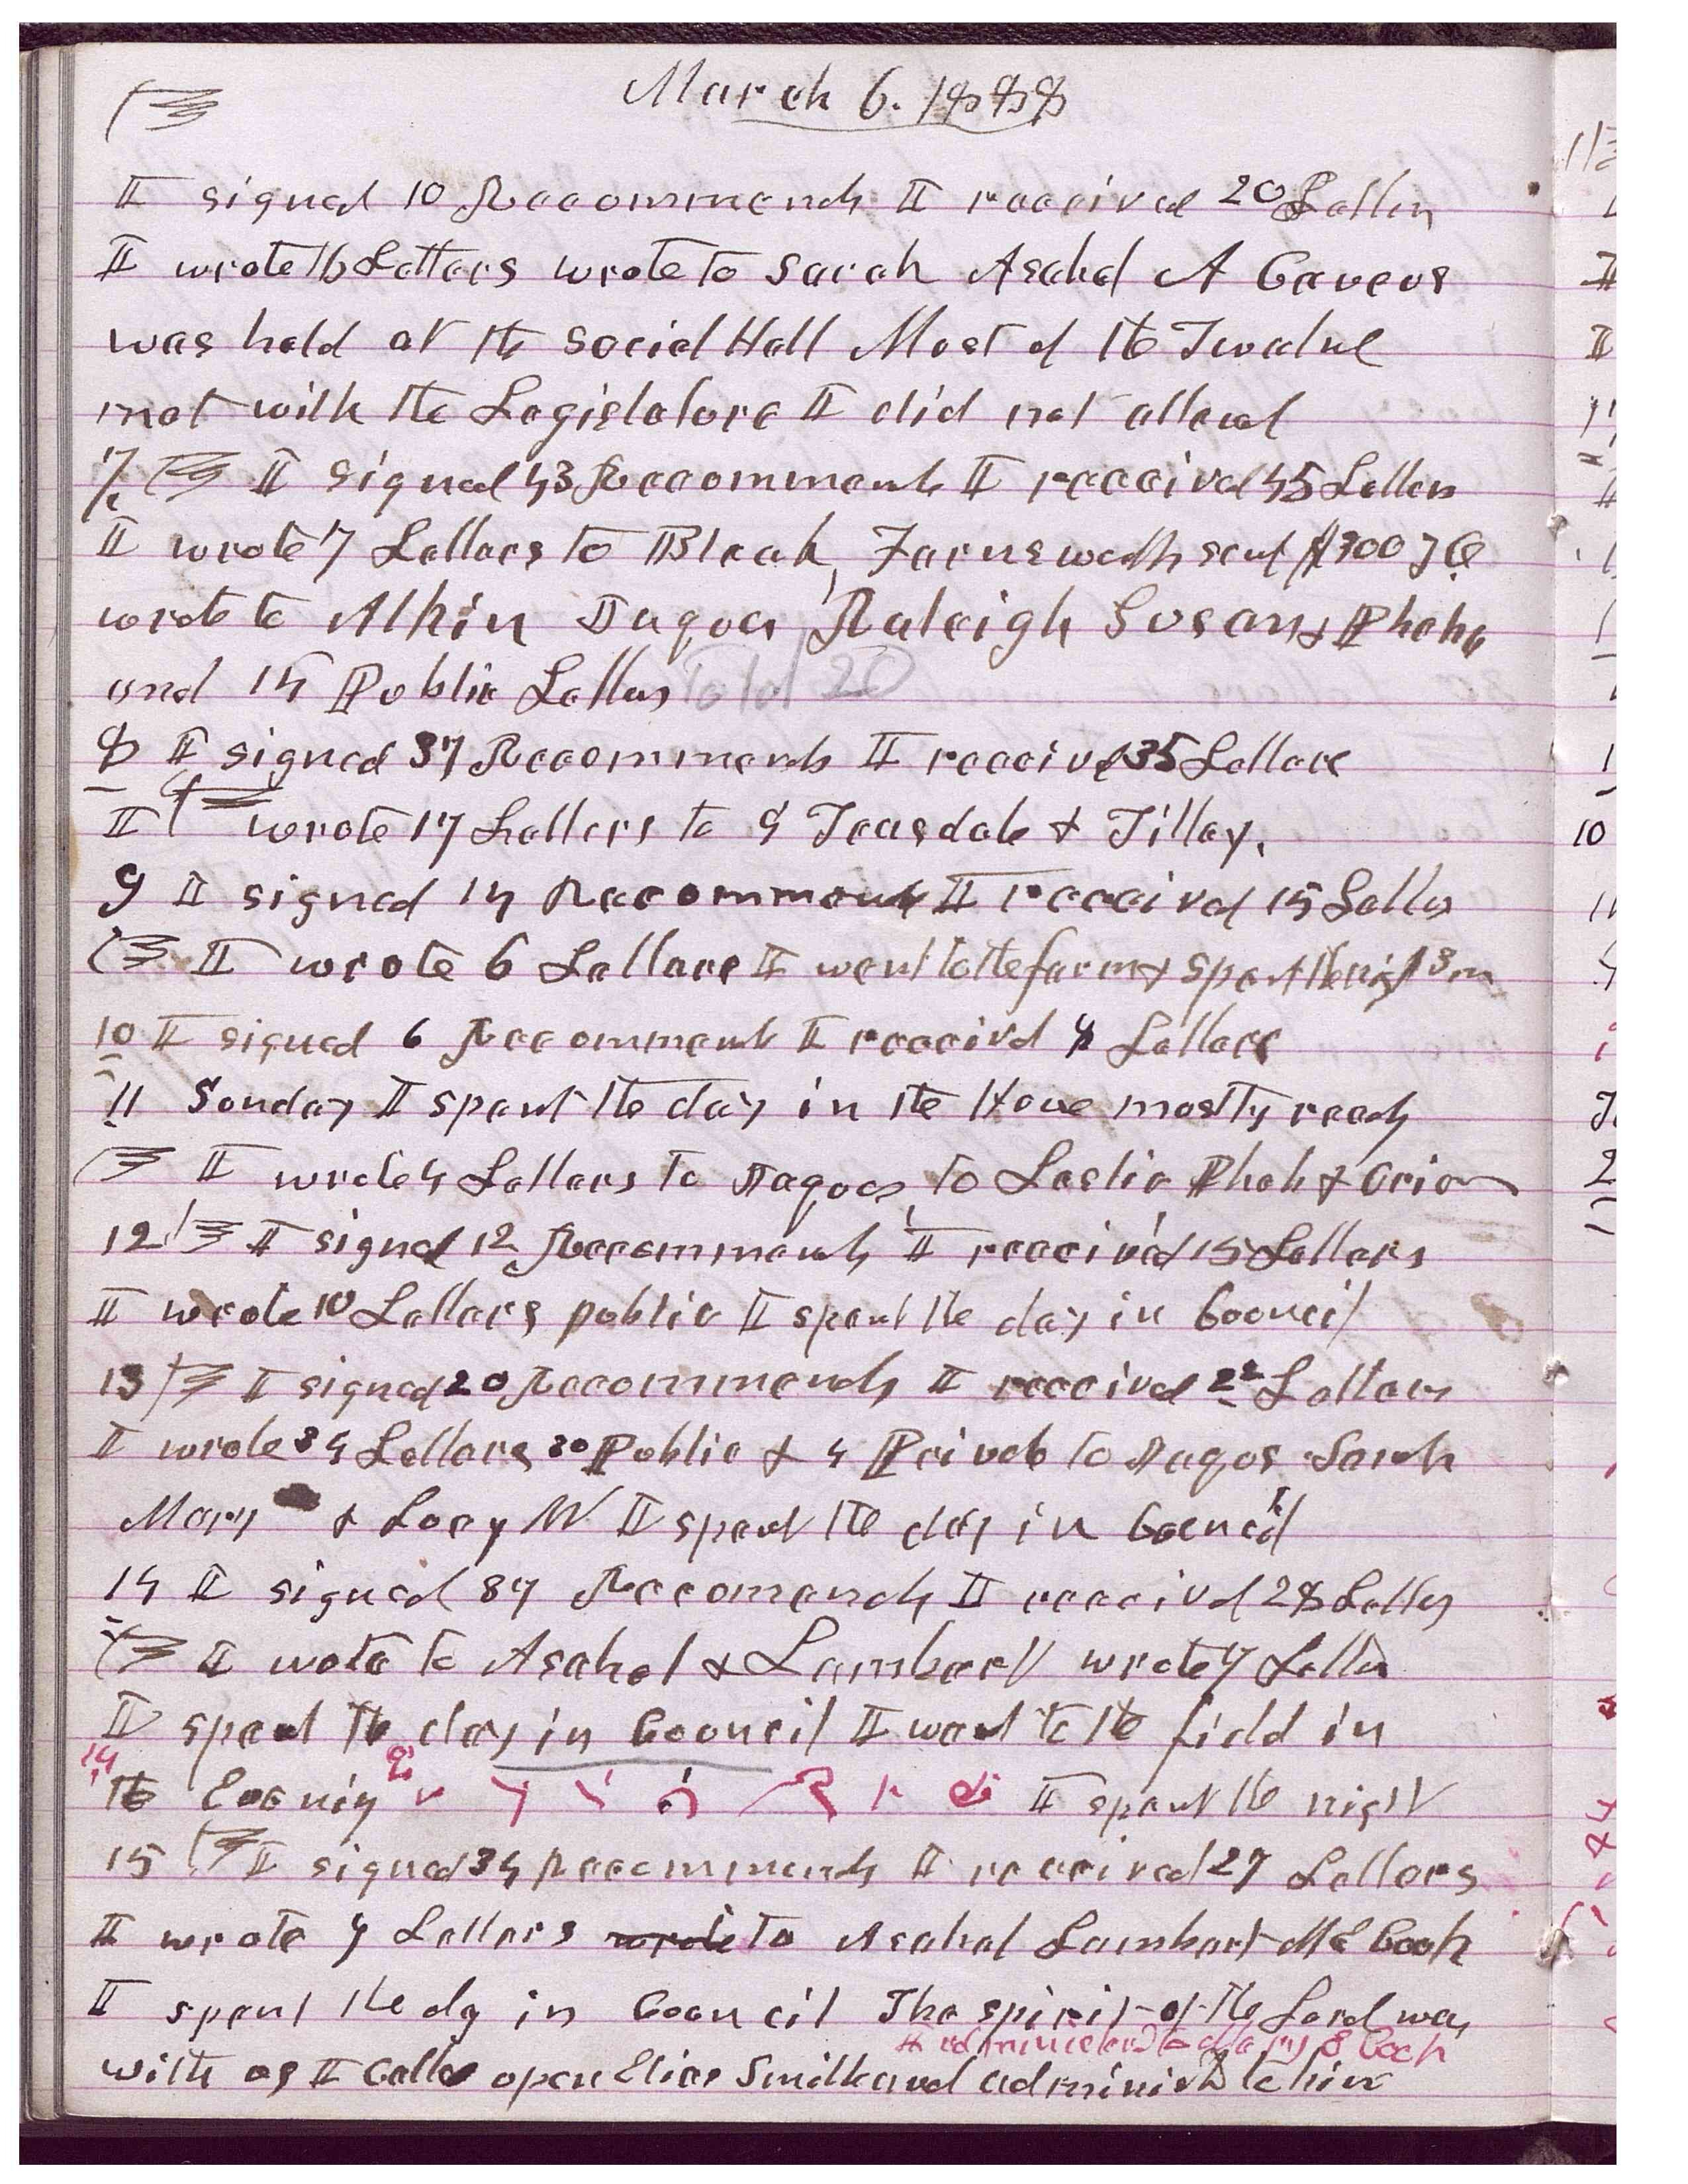 March 6. 1888
I signed 10 Recommends I received 20 Letters
I wrote 16 Letters wrote to Sarah Asahel A Caucus
was held at the Social Hall Most of the Twelve
met with the Legislature I did not attend
7 I signed 43 Recommends I received 45 Letters
I wrote 7 Letters to Bleak, Farnsworth sent $300
wrote to Atkin Bagoa Raleigh Susan & Phebe
and 14 Public Letters Total 20
8 I signed 37 Recommends I received 35 Letters
I wrote 17 Letters to Teasdale & Tilley.
9 I signed 14 Recommends I received 15 Letters
I wrote 6 Letters I went to the farm & spent the night 3 m
10 I signed 6 Recommends I receivd 8 Letters
11 Sunday I spent the day in the House mostly
I wrote 4 Letters to Bagoa, to Leslie Pheb & Orion
12 I signed 12 Recommends I received 15 Letters
I wrote 10 Letters public I spent the day in Council
13 I signed 20 Recommends I received 22 Letters
I wrote 34 Letters 30 Public & 4 Private to Sarah
Mary & Lucy W I spent the day in Council
14 I signed 87 Recomends I receivd 28 Letters
I wote to Asahel & Lambert wrote 7 Letters
I spent the day in Council I went to the field in
14
the Evening I spent the night
15 I signed 34 Recommends I received 27 Letters
I wrote 7 Letters to Asahel Lambart M E Cook
I spent the dy in Council The spirit of the Lord was
I administerd to Mary E Cook
with us I calld upon Elias Smith and administerd to him